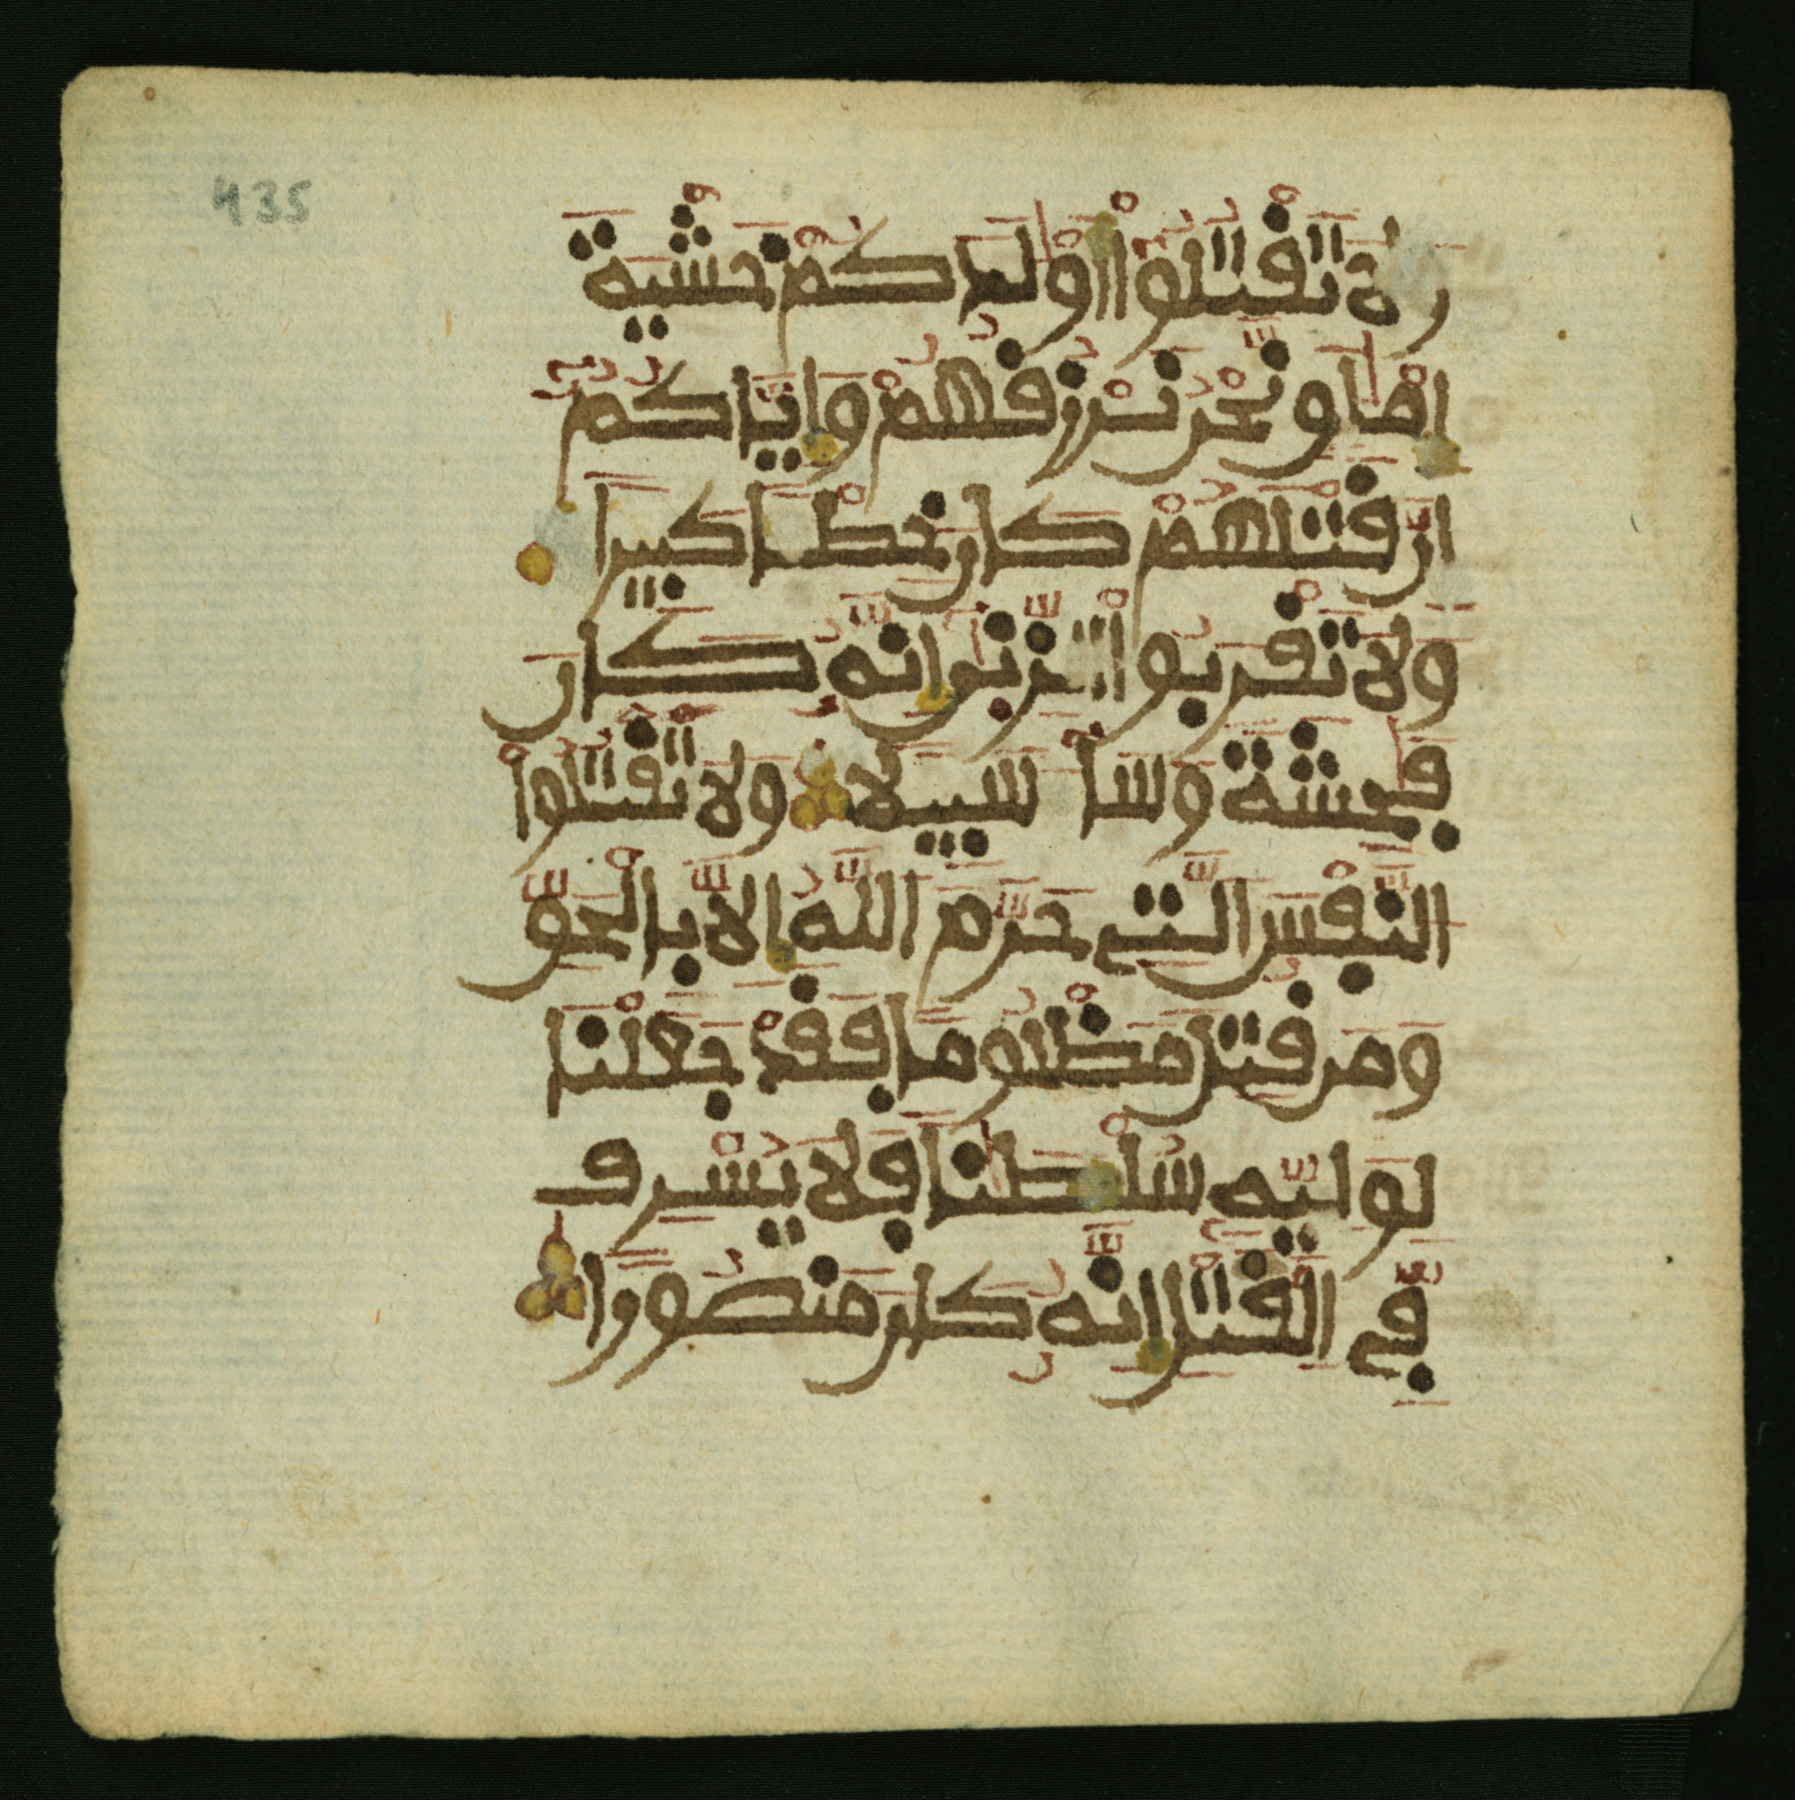 435
ولا تقتلوا اولدكم خشية
املو نحن نرزقهم واياكم
ان قتلهم كان خطا كبيرا
ولا تقربوا الزنوا انه كان
فحشة وسا سبيلا ولا تقتلوا
النفس التي حرم الله الا بالحق
ومن قتل مظلوما فقد جعلنا
لوليه سلطنا فلا يسرف
في القتل انه كان منصورا